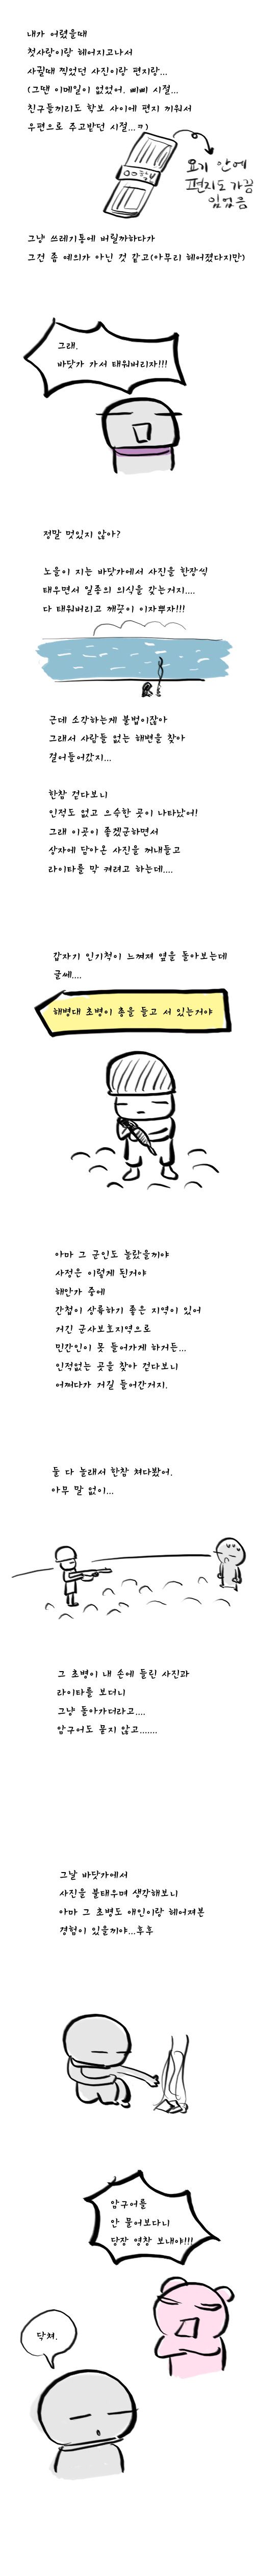 내가 어렸을때
첫사랑이랑 헤어지고나서
사귈때 찍었던 사진이랑 편지랑...
(그땐 이메일이 없었어. 삐삐 시절...
친구들끼리도 학보 사이에 편지 끼워서
우편으로 주고받던 시절...ㅋ)
OO학보
요기 안에
편지도 가끔
있었음
그냥 쓰레기통에 버릴까하다가
그건 좀 예의가 아닌 것 같고(아무리 헤어졌다지만)
그래.
바닷가 가서 태워버리자!!!
정말 멋있지 않아?
노을이 지는 바닷가에서 사진을 한장씩
태우면서 일종의 의식을 갖는거지....
다 태워버리고 깨끗이 이자뿌자!!!
근데 소각하는게 불법이잖아
그래서 사람들 없는 해변을 찾아
걸어들어갔지...
한참 걷다보니
인적도 없고 으슥한 곳이 나타났어!
그래 이곳이 좋겠군하면서
상자에 담아온 사진을 꺼내들고
라이타를 막 켜려고 하는데....
갑자기 인기척이 느껴져 옆을 돌아보는데
글쎄....
해병대 초병이 총을 들고 서 있는거야
아마 그 군인도 놀랐을끼야
사정은 이렇게 된거야
해안가 중에
간첩이 상륙하기 좋은 지역이 있어
거긴 군사보호지역으로
민간인이 못 들어가게 하거든...
인적없는 곳을 찾아 걷다보니
어쩌다가 거길 들어간거지.
둘 다 놀래서 한참 쳐다봤어.
아무 말 없이...
그 초병이 내 손에 들린 사진과
라이타를 보더니
그냥 돌아가더라고....
암구어도 묻지 않고.......
그날 바닷가에서
사진을 불태우며 생각해보니
아마 그 초병도 애인이랑 헤어져본
경험이 있을끼야...후후
암구어를
안 물어보다니
당장 영창 보내야!!!
닥쳐.